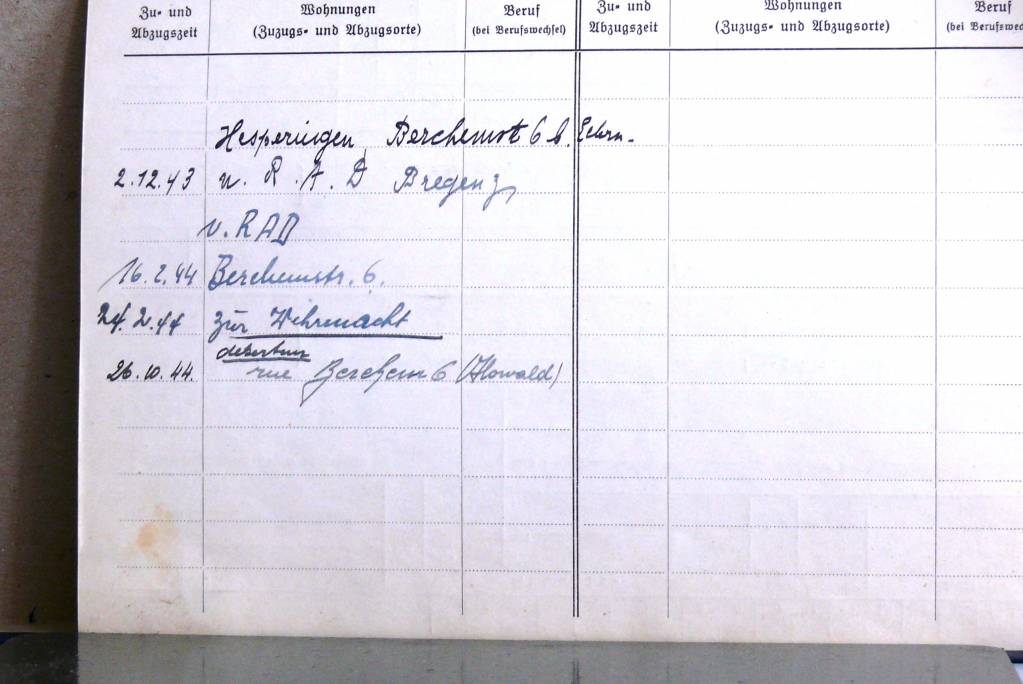 Zu- und Abzugszeit
Wohnungen
(Zuzugs- und Abzugsorte)
Beruf
(bei Berufswechsel)
Zu- und Abzugszeit
Wohnungen
(Zuzugs- und Abzugsorte)
Beruf
(bei Berufswec
Hesperingen, Berchemstr 6 b. Eltern.
2.12.43 n. R.A.D Bregenz
v. RAD
16.2.44 Berchemstr. 6.
24.2.44 zur Wehrmacht
26.10.44. rue Berchem 6 (Howald)